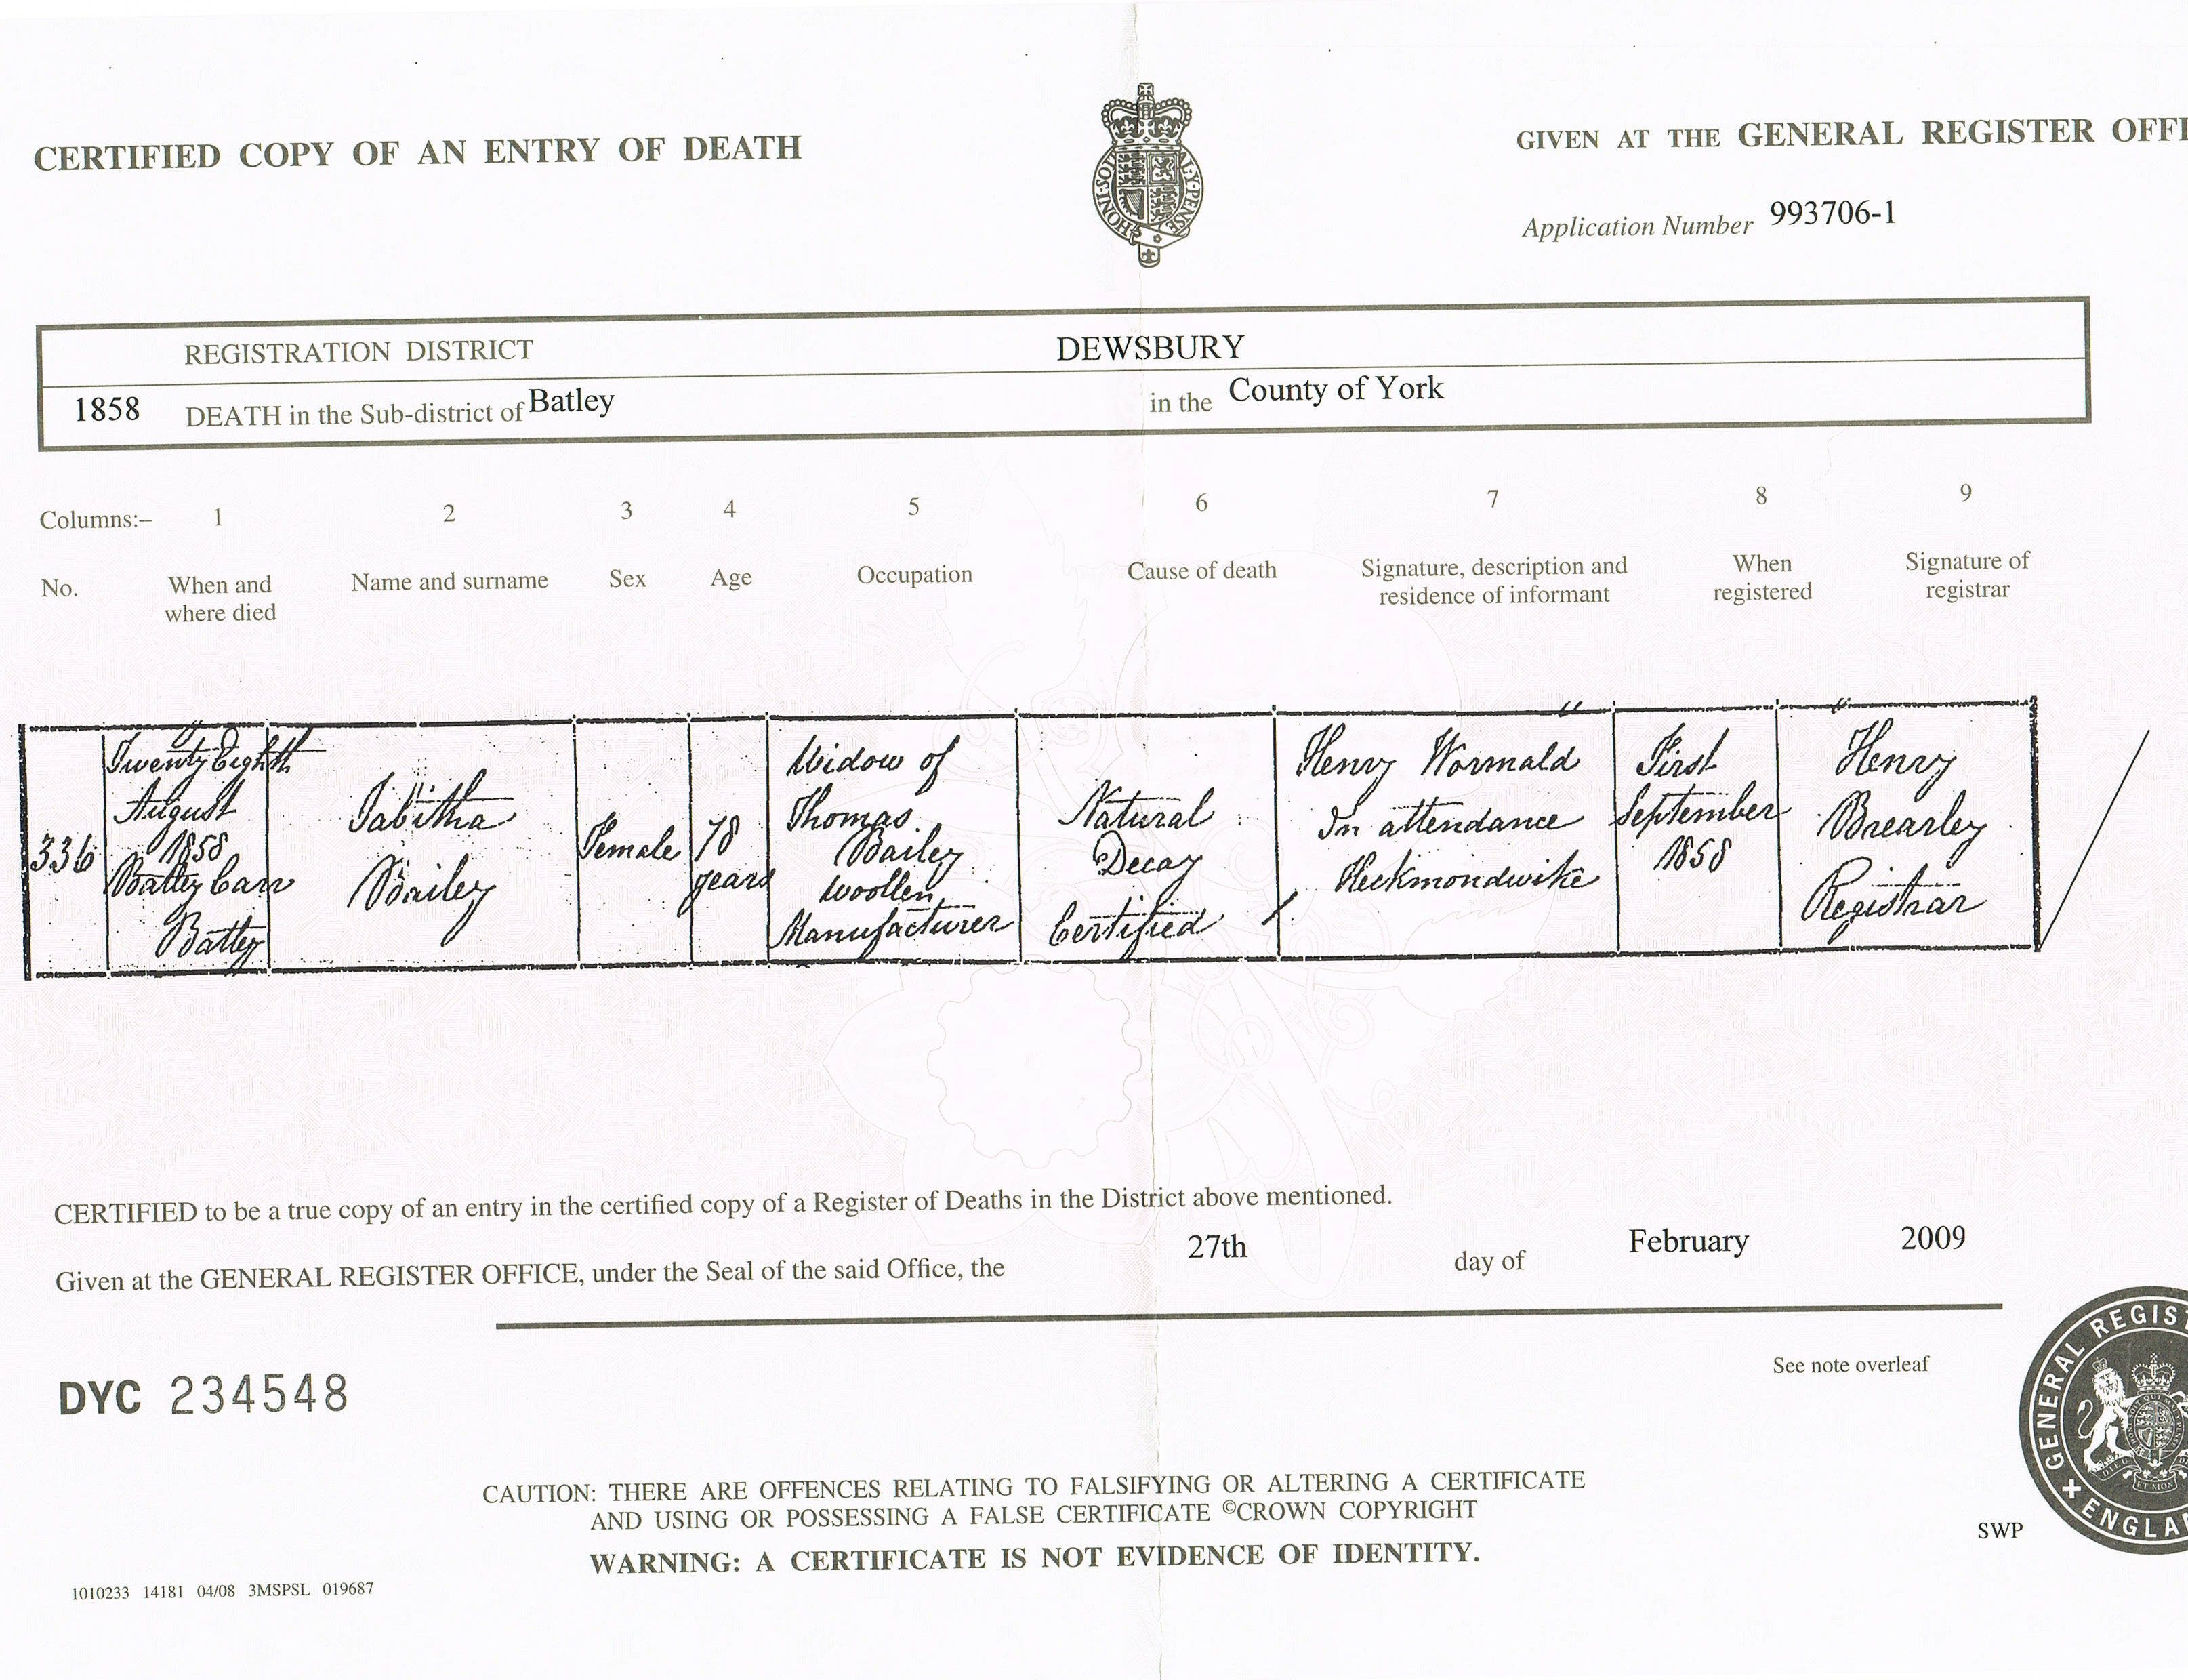 CERTIFIED COPY OF AN ENTRY OF DEATH
GIVEN AT THE GENERAL REGISTER OFFI
HONI·SOI AL·Y·PENSE
Application Number 993706-1
REGISTRATION DISTRICT DEWSBURY
1858 DEATH in the Sub-district of Batley in the County of York
Columns:– 1 2 3 4 5 6 7 8 9
No. When and where died Name and surname Sex Age Occupation Cause of death Signature, description and residence of informant When registered Signature of registrar
336
Twenty Eighth
August
1858
Batley Carr
Batley
Tabitha
Bailey
Female
78
years
Widow of
Thomas
Bailey
Woollen
Manufacturer
Natural
Decay
Certified
Henry Wormald
In attendance
Heckmondwike
First
September
1858
Henry
Brearley
Registrar
CERTIFIED to be a true copy of an entry in the certified copy of a Register of Deaths in the District above mentioned.
Given at the GENERAL REGISTER OFFICE, under the Seal of the said Office, the 27th day of February 2009
See note overleaf
DYC 234548
GENERAL REGIST
ENGLA
CAUTION: THERE ARE OFFENCES RELATING TO FALSIFYING OR ALTERING A CERTIFICATE
AND USING OR POSSESSING A FALSE CERTIFICATE ©CROWN COPYRIGHT
SWP
WARNING: A CERTIFICATE IS NOT EVIDENCE OF IDENTITY.
1010233 14181 04/08 3MSPSL 019687